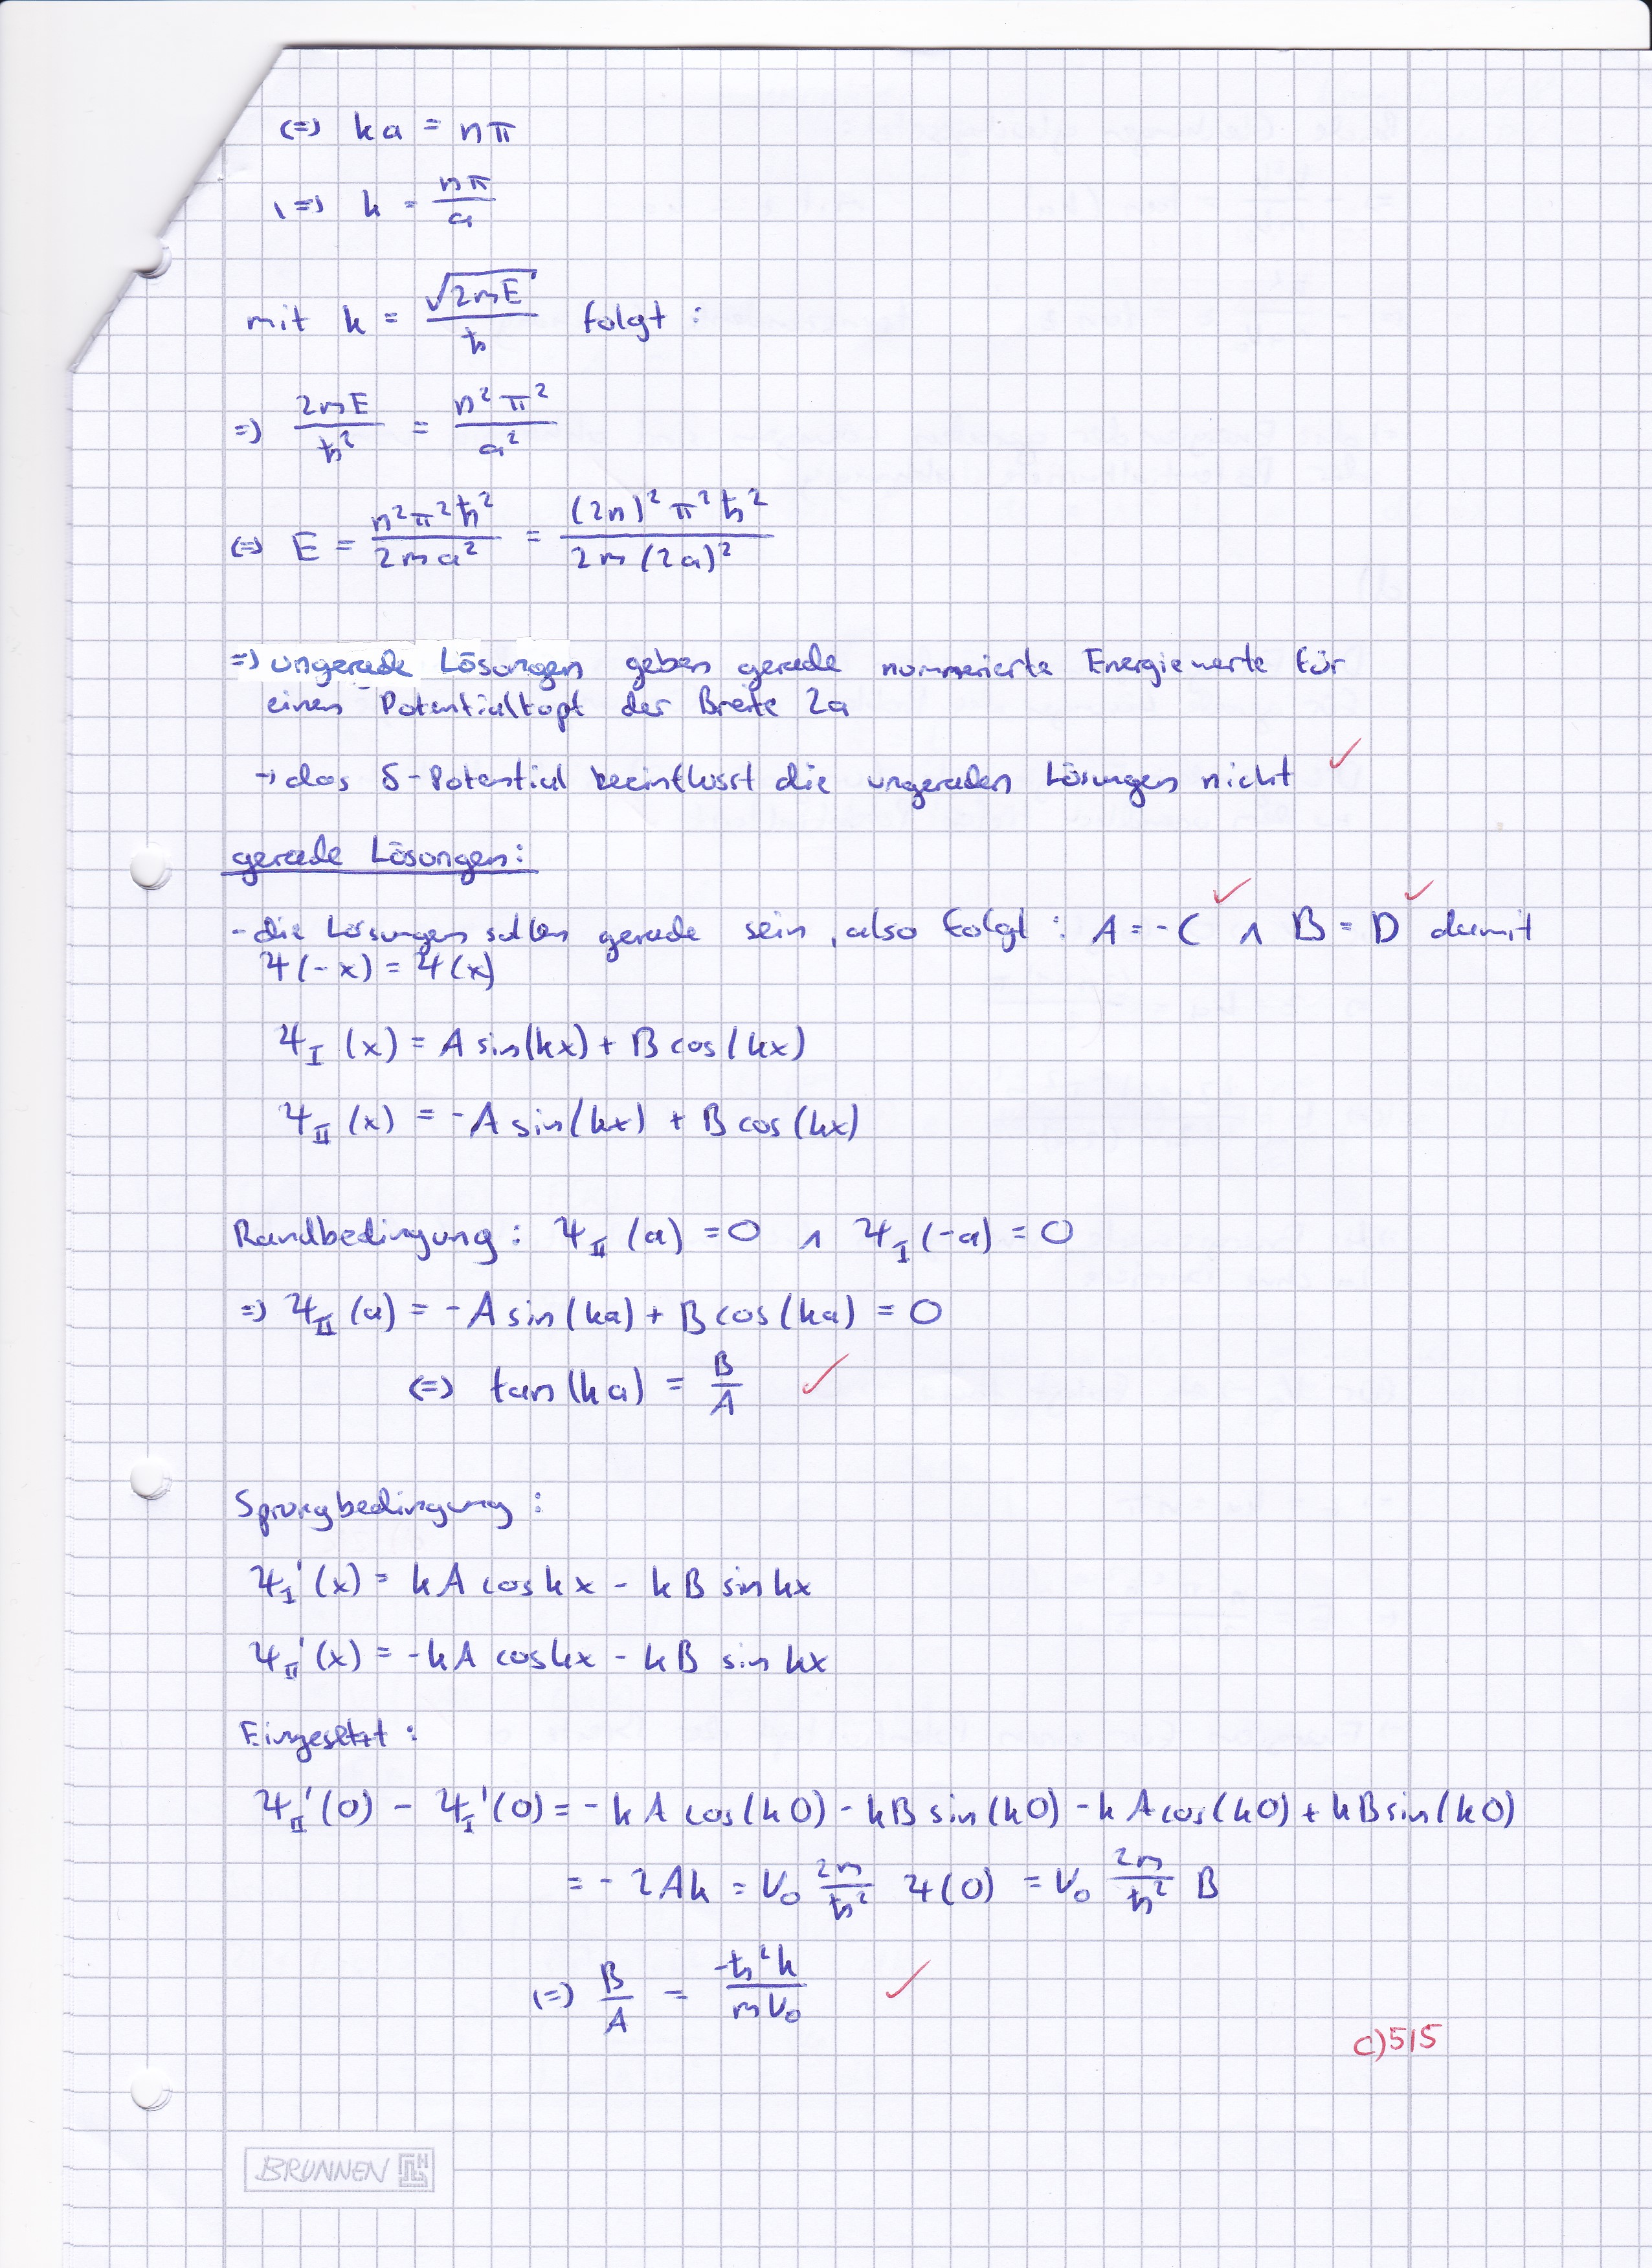 (=) ka = nπ
(=) k = nπ/a
mit k = √(2mE)/ħ folgt :
=) 2mE/ħ² = n²π²/a²
(=) E = n²π²ħ²/2ma² = (2n)²π²ħ²/2m(2a)²
=) ungerade Lösungen geben gerade nummerierte Energiewerte für
einen Potentialtopf der Breite 2a
→ das δ-Potential beeinflusst die ungeraden Lösungen nicht ✓
gerade Lösungen:
- die Lösungen sollen gerade sein, also folgt : A = -C ✓ ∧ B = D ✓ damit
Ψ(-x) = Ψ(x)
Ψ_I (x) = A sin(kx) + B cos(kx)
Ψ_II (x) = -A sin(kx) + B cos(kx)
Randbedingung : Ψ_II (a) = 0 ∧ Ψ_I (-a) = 0
=) Ψ_II (a) = -A sin(ka) + B cos(ka) = 0
(=) tan(ka) = B/A ✓
Sprungbedingung :
Ψ_I'(x) = kA cos kx - kB sin kx
Ψ_II'(x) = -kA cos kx - kB sin kx
Eingesetzt :
Ψ_II'(0) - Ψ_I'(0) = -kA cos(k0) - kB sin(k0) - kA cos(k0) + kB sin(k0)
= -2Ak = V₀ 2m/ħ² Ψ(0) = V₀ 2m/ħ² B
(=) B/A = -ħ²k/mV₀ ✓
c) 5/5
BRUNNEN